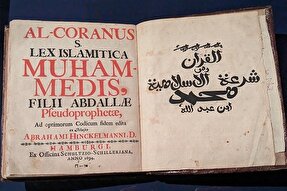 AL-CORANUS
S.
LEX ISLAMITICA
MUHAM-
MEDIS,
FILII ABDALLÆ
Pseudoprophetæ,
Ad optimorum Codicum fidem edita
ex
ABRAHAMI HINCKELMANNI, D.
HAMBURGI,
Ex Officina SCHULTZIO-SCHILLERIANA,
ANNO 1694.
القرآن
شرعة الاسلامية
محمد
ابن عبد الله